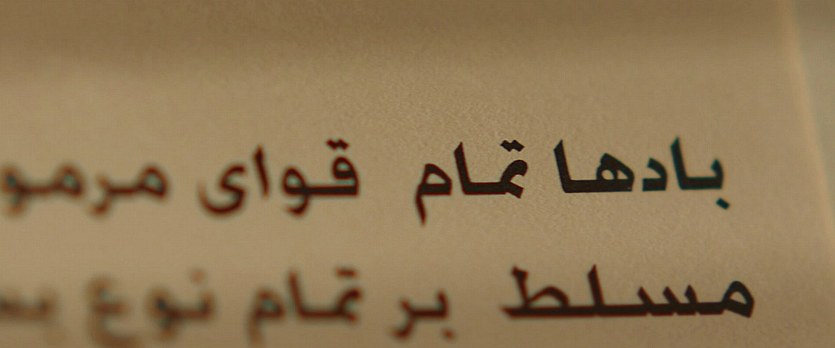 بادها تمام قوای
مسلط بر تمام نوع